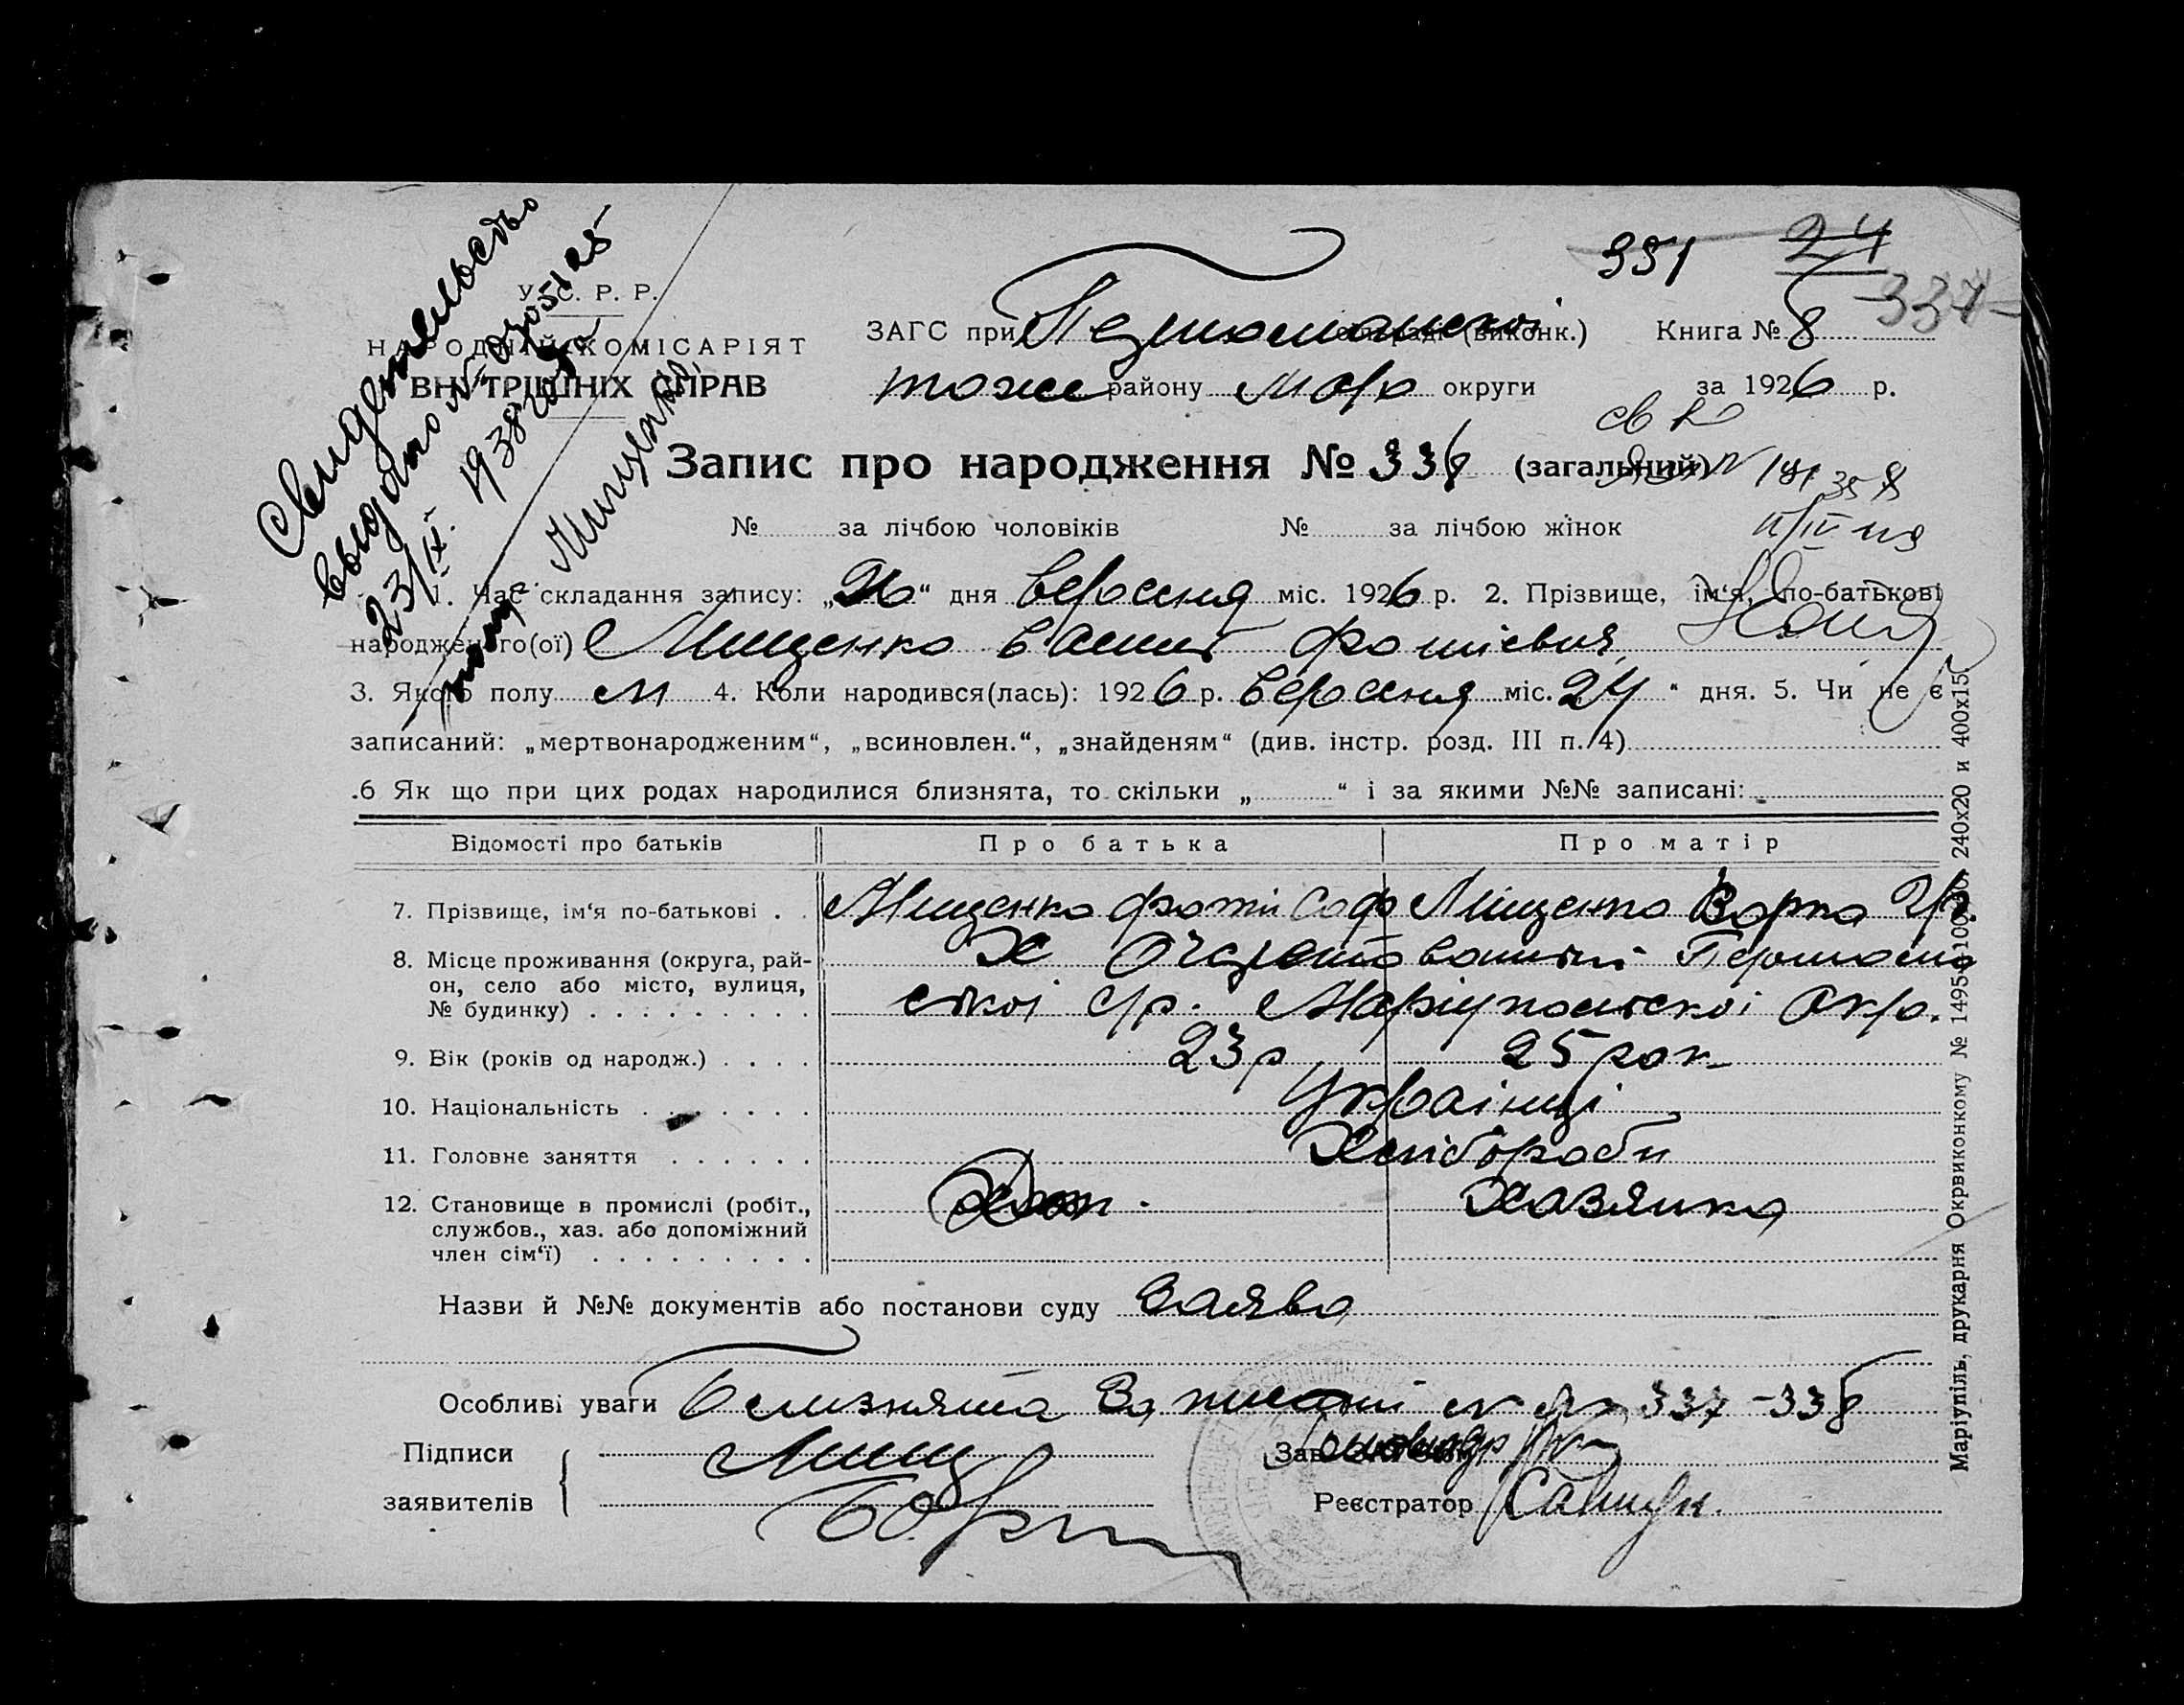 351 24
337
У. С. Р. Р.
НАРОДНИЙ КОМІСАРІЯТ
ВНУТРІШНІХ СПРАВ
Свидетельство
выдано №
23/IX. 1938 года
Мищенко
ЗАГС при (виконк.) Книга № 8
тоже району Мар округи за 1926 р.
Запис про народження № 338 (загальний)
№ за лічбою чоловіків № за лічбою жінок
1. Час складання запису: „26“ дня Вересня міс. 1926 р. 2. Прізвище, ім‘я, по-батькові
народженого(ої) Мищенко Фотієвич
3. Якого полу м 4. Коли народився(лась): 1926 р. Вересня міс. 24 “ дня. 5. Чи не є
записаний: „мертвонародженим“, „всиновлен.“, „знайденям“ (див. інстр. розд. III п. 4)
.6 Як що при цих родах народилися близнята, то скільки „ “ і за якими №№ записані:
Відомості про батьків Про батька Про матір
7. Прізвище, ім‘я по-батькові . . Мищенко Фотій Соф Міщенко Варка Гр.
8. Місце проживання (округа, рай-
он, село або місто, вулиця,
№ будинку) . . . . . . . . . с/р. Маріупольскоі Окр.
9. Вік (років од народж.) . . . . 23 р 25 рок
10. Національність . . . . . . . Украінці
11. Головне заняття . . . . . . Хлібороби
12. Становище в промислі (робіт.,
службов., хаз. або допоміжний
член сім‘ї) . . . . . . . . . Хазяйка
Назви й №№ документів або постанови суду Заява
Особливі уваги Близнята За 337-338
Підписи Мищ Зав.
заявителів Реєстратор
Маріупіль, друкарня Окрвиконкому № 1495 240х20 и 400х15